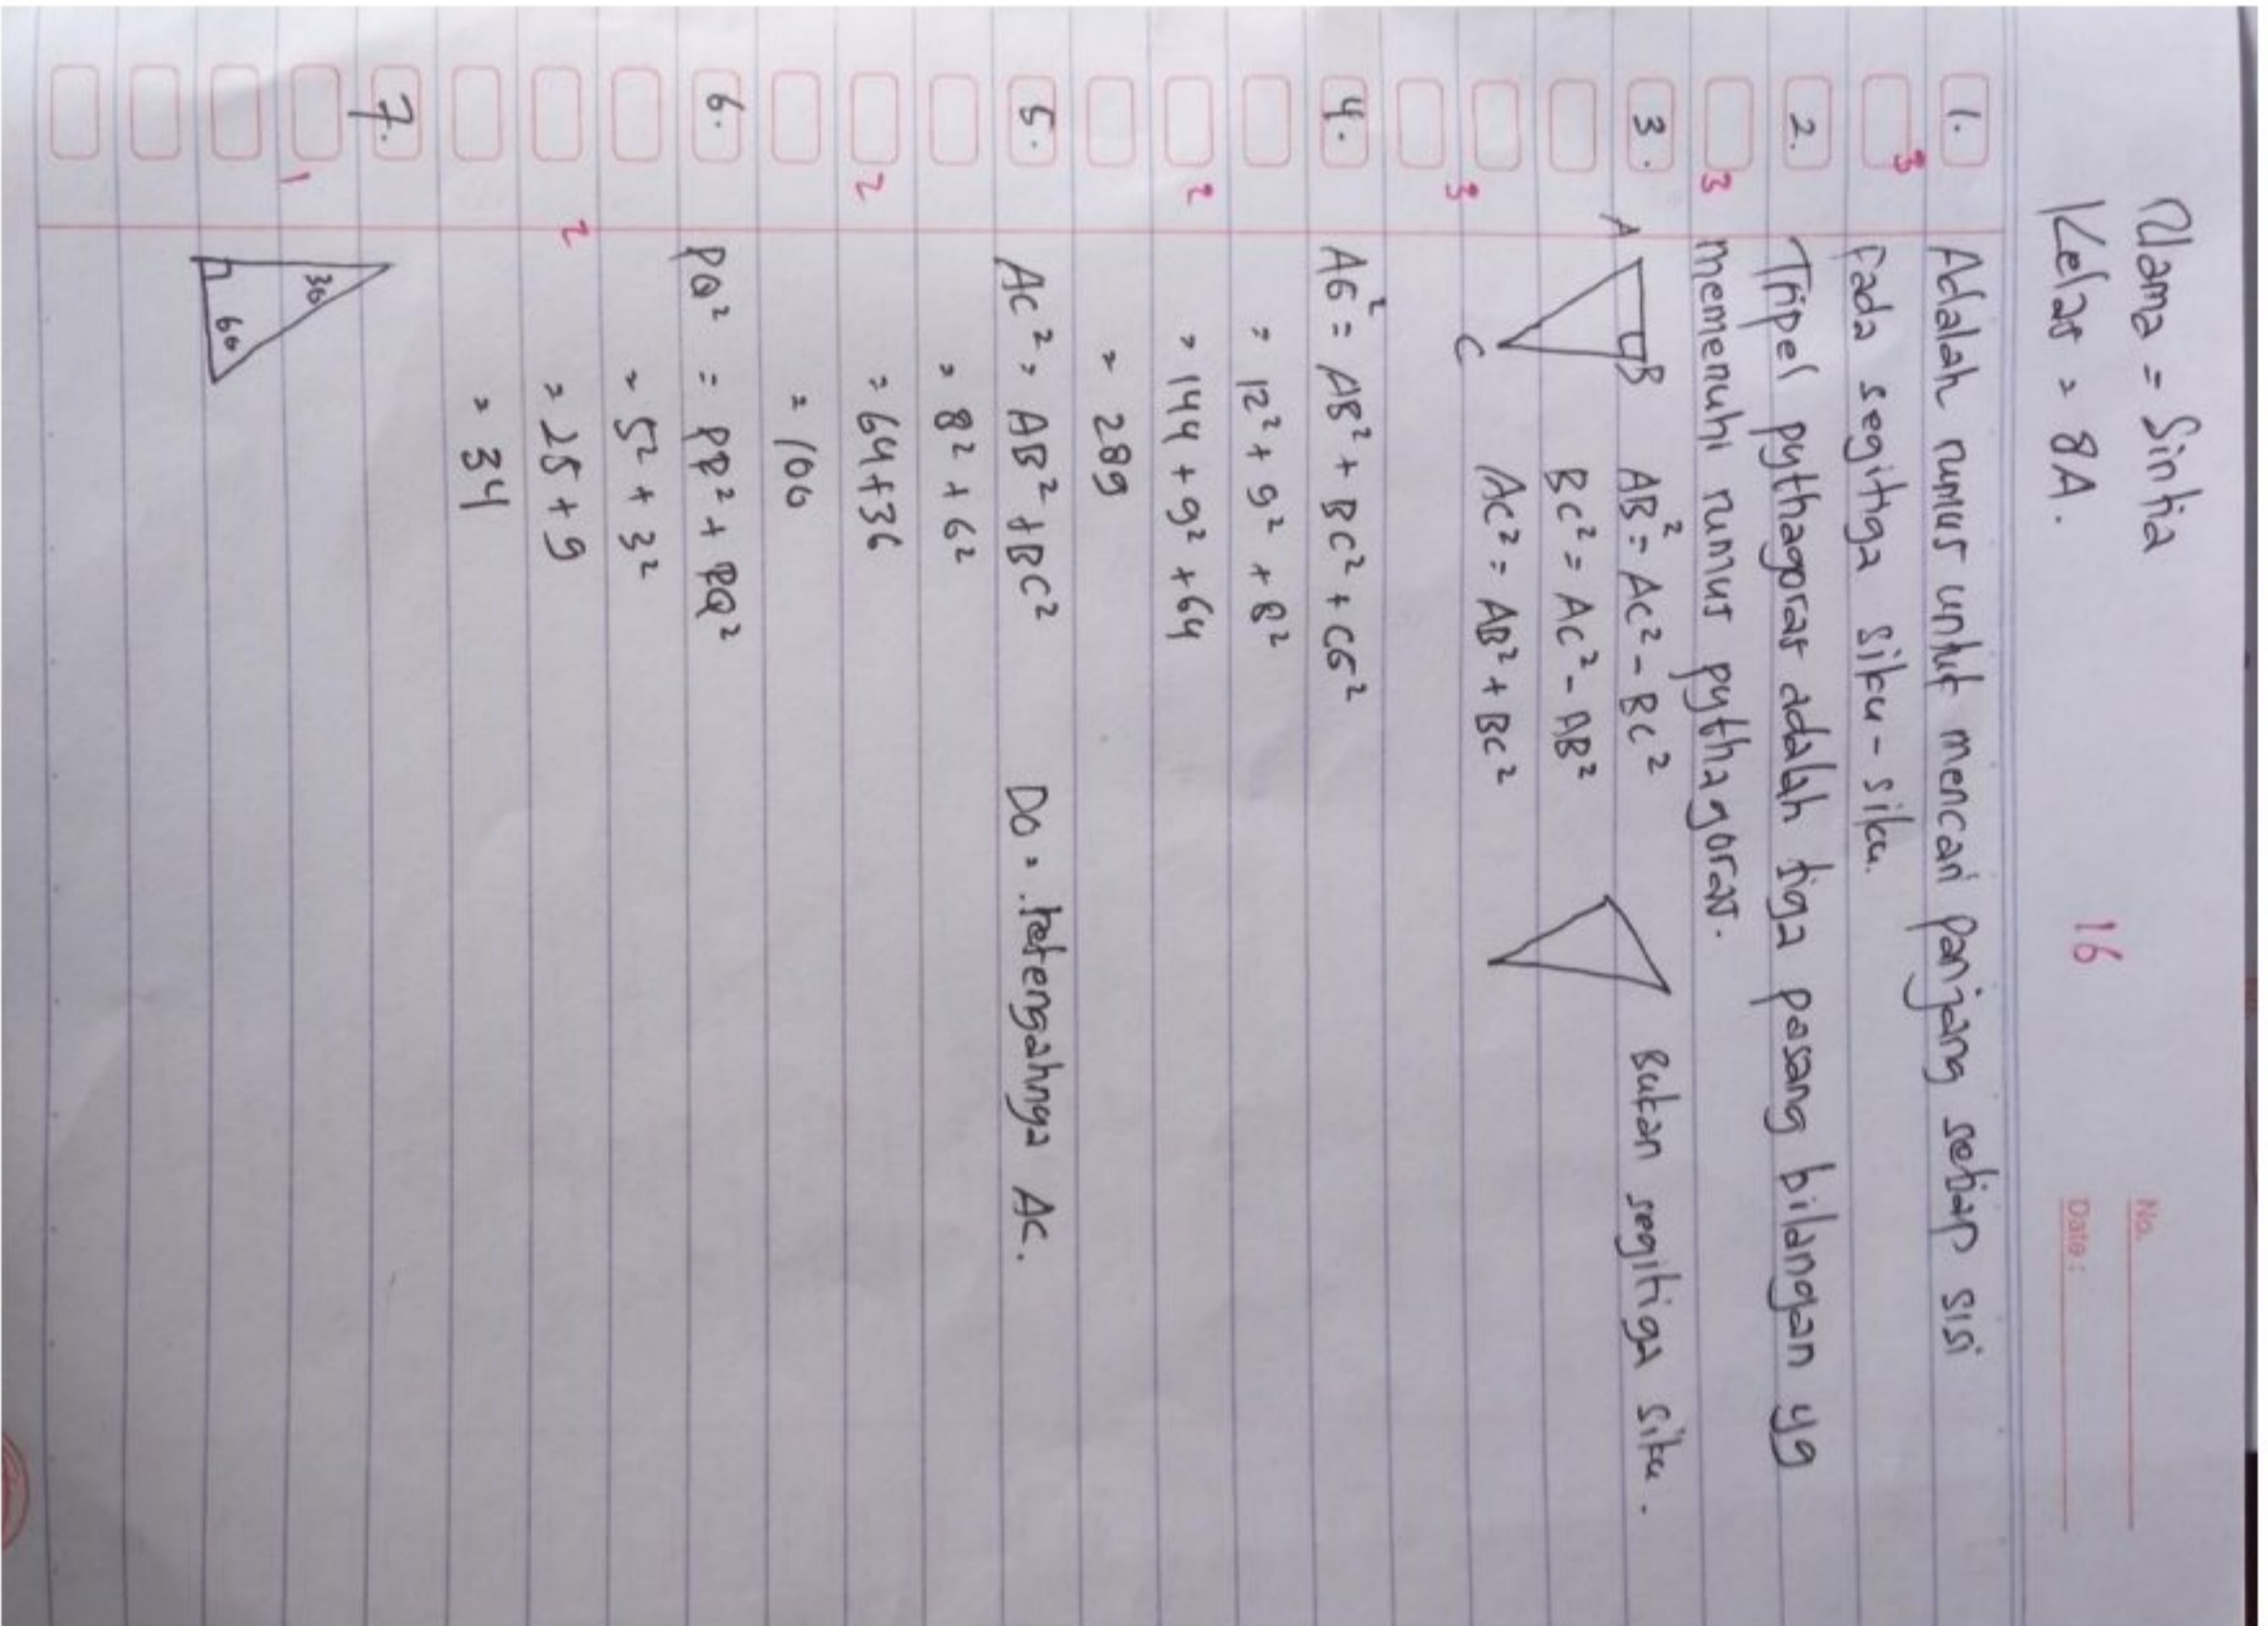 No.
Date:
Nama = Sintia
Kelas = 8A.
16
1. Adalah rumus untuk mencari panjang setiap sisi
3 Pada segitiga siku-siku.
2. Tripel pythagoras adalah tiga pasang bilangan yg
3 memenuhi rumus pythagoras.
3. A B AB² = AC² - BC² Bukan segitiga siku.
BC² = AC² - AB²
3 C AC² = AB² + BC²
4. AG² = AB² + BC² + CG²
= 12² + 9² + 8²
2 = 144 + 9² + 64
= 289
5. AC² = AB² + BC² DO = .setengahnya AC.
= 8² + 6²
2 = 64 + 36
= 100
6. PQ² = PR² + RQ²
= 5² + 3²
2 = 25 + 9
= 34
7.
1 30
60